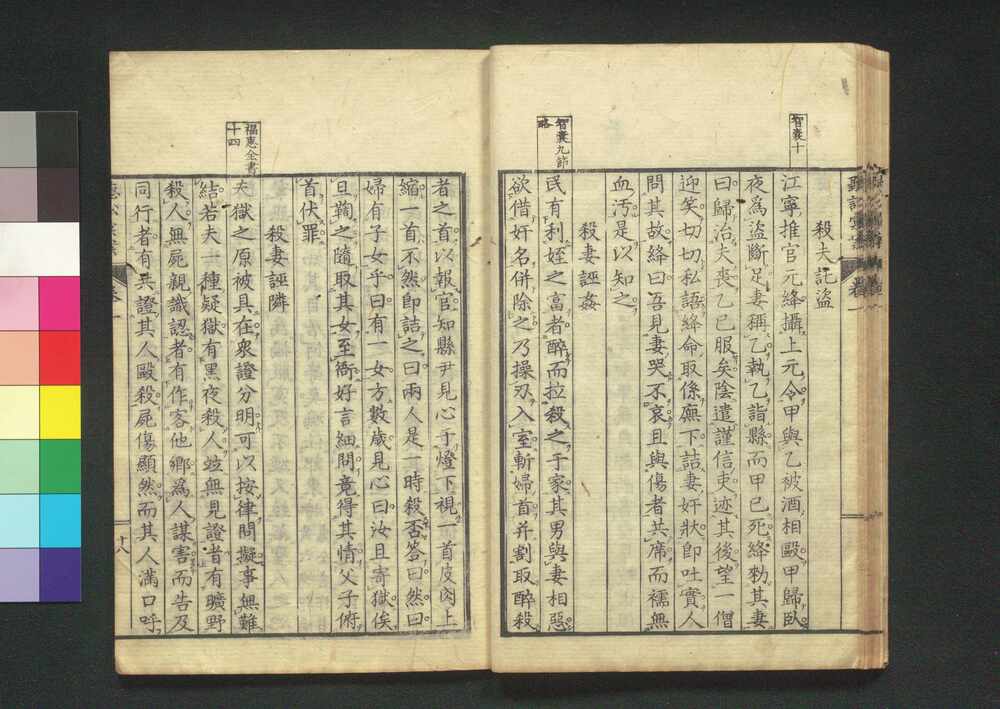 智囊十
殺夫託盜
江寧推官元絳攝上元令甲與乙被酒相毆甲歸臥
夜爲盜斷足妻稱乙執乙詣縣而甲已死絳勑其妻
曰歸治夫喪乙已服矣陰遣謹信吏迹其後望一僧
迎笑切切私語絳命取係廡下詰妻奸狀卽吐實人
問其故絳曰吾見妻哭不哀且與傷者共席而襦無
血汚是以知之
殺妻誣姦
智囊九節略
民有利姪之富者醉而拉殺之于家其男與妻相惡
欲借奸名併除之乃操刃入室斬婦首并割取醉殺
者之首以報官知縣尹見心于燈下視一首皮肉上
縮一首不然卽詰之曰兩人是一時殺否答曰然曰
婦有子女乎曰有一女方數歲見心曰汝且寄獄俟
旦鞠之隨取其女至衙好言細問竟得其情父子俯
首伏罪
殺妻誣隣
福惠全書十四
夫獄之原被具在衆證分明可以按律問擬事無難
結若夫一種疑獄有黑夜殺人並無見證者有曠野
殺人無屍親識認者有作客他鄉爲人謀害而告及
同行者有共證其人毆殺屍傷顯然而其人滿口呼
十八